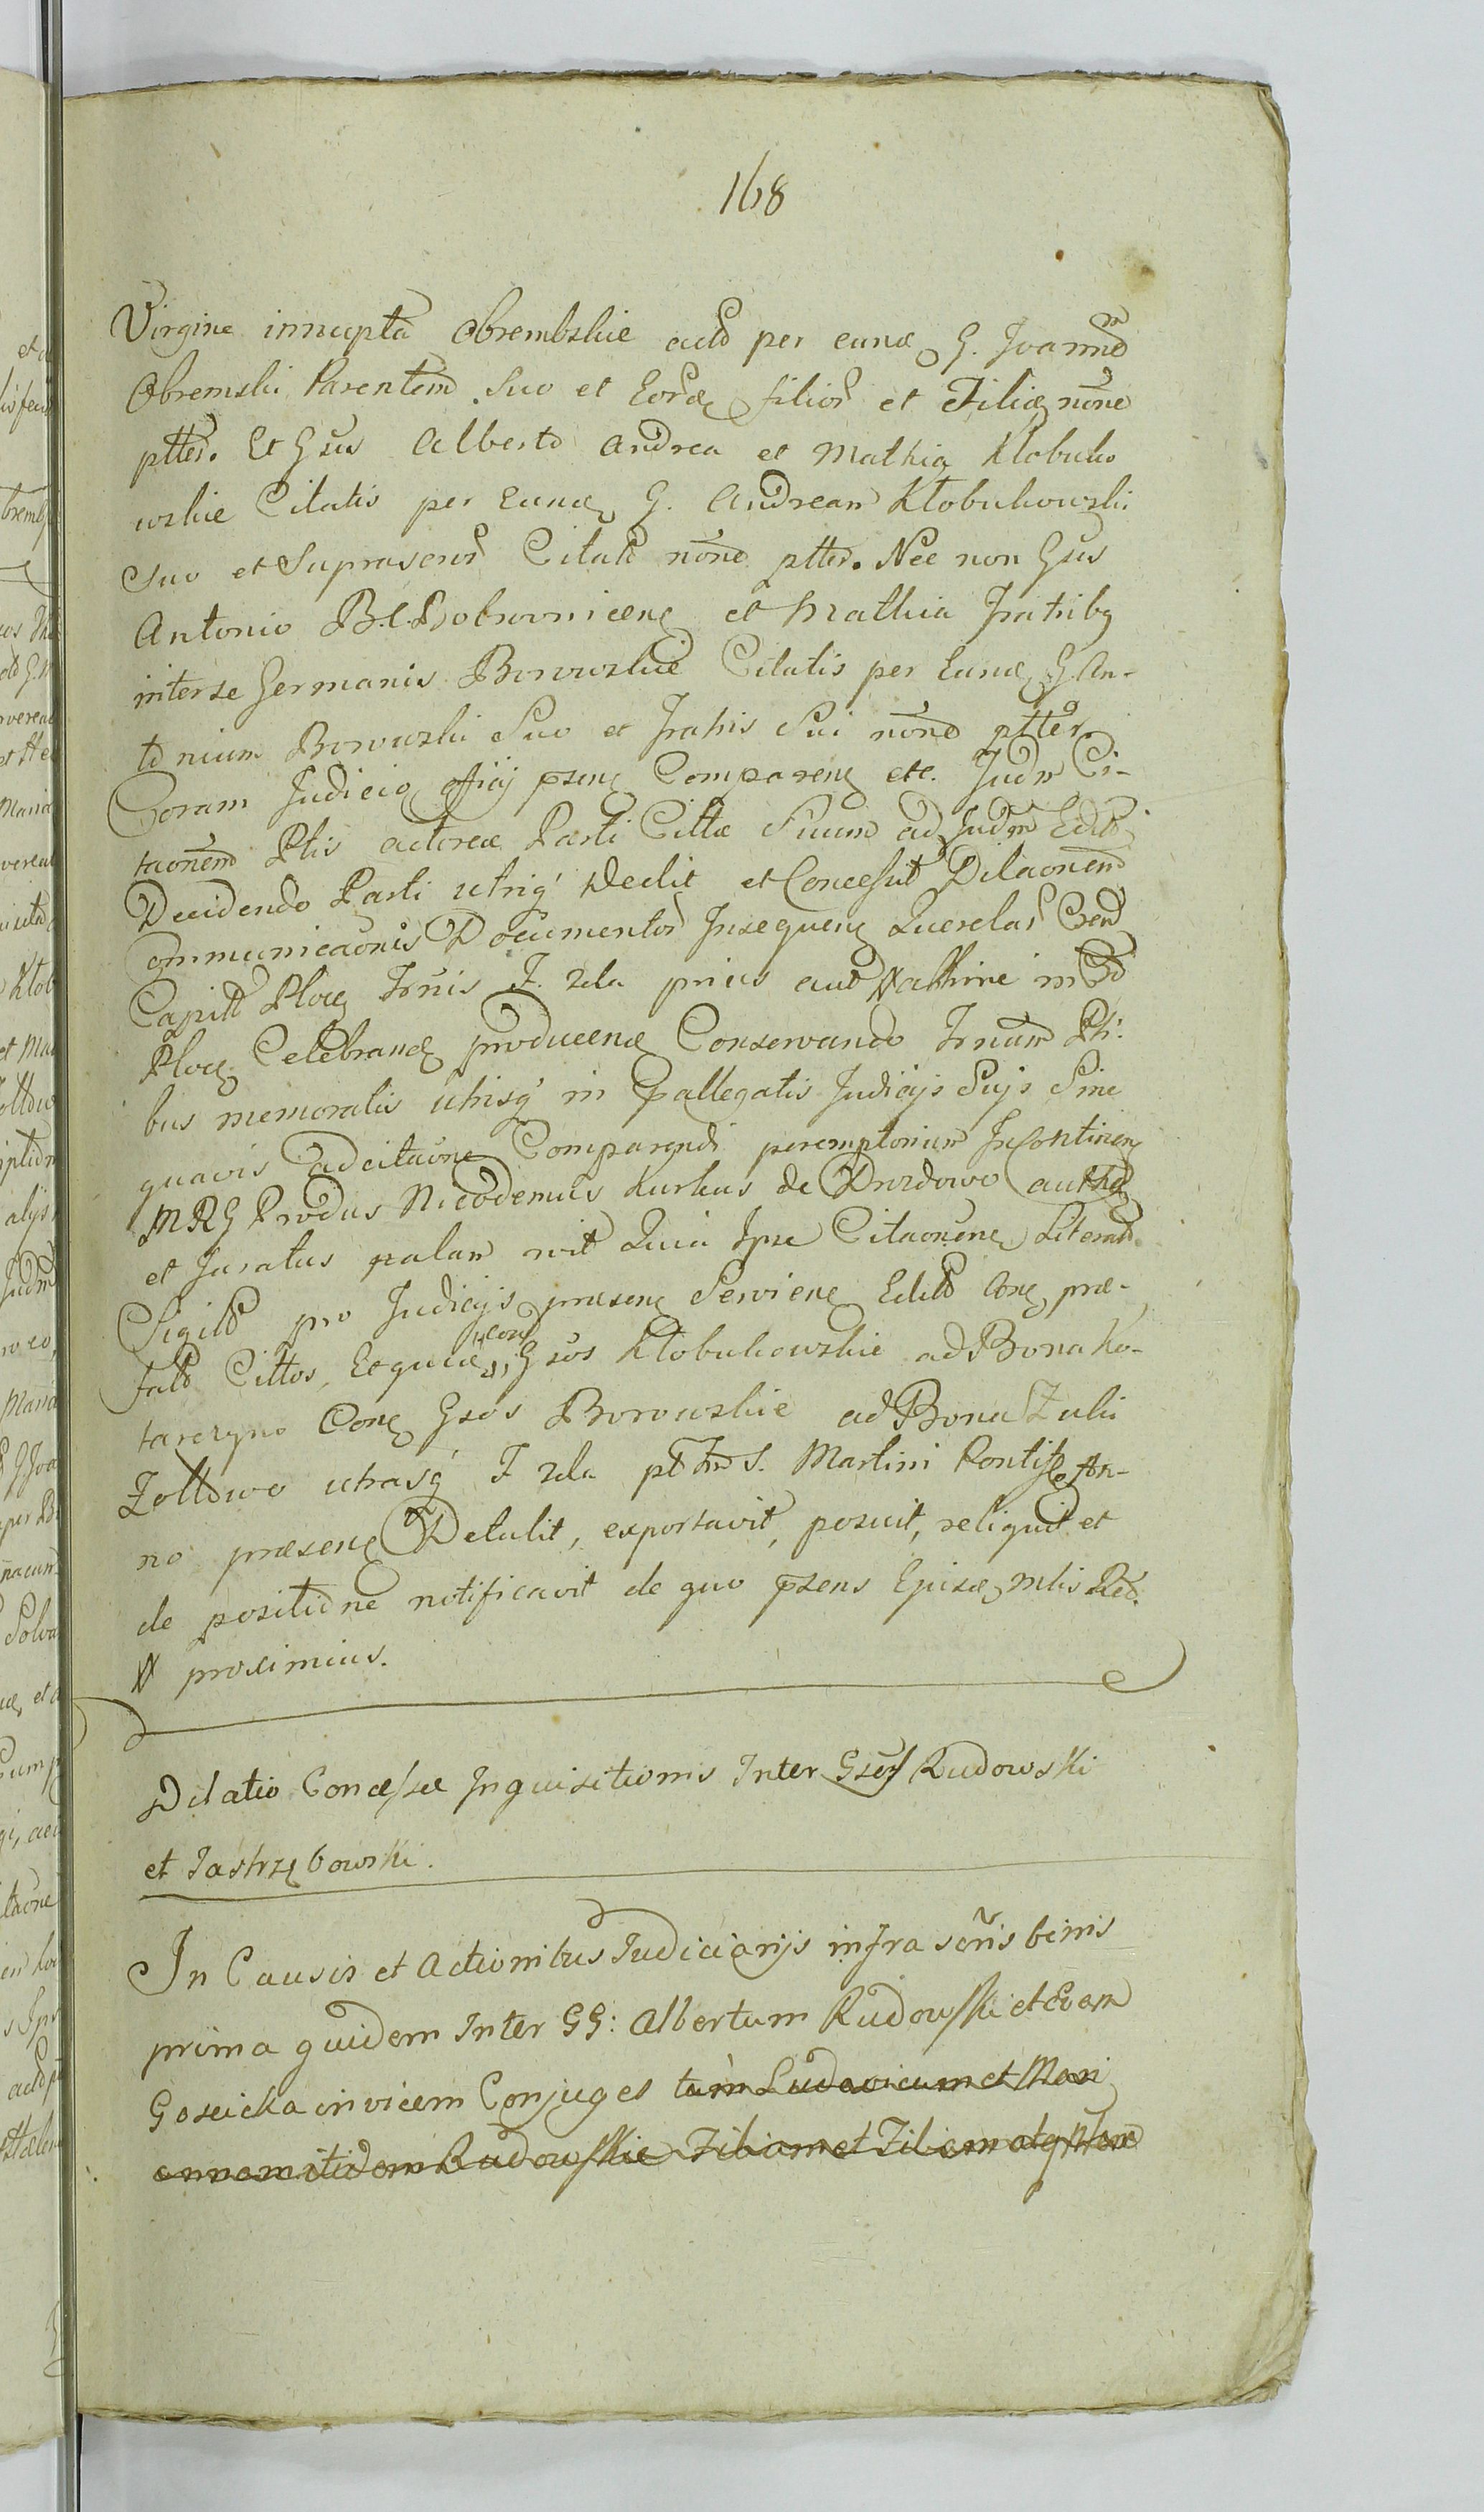 168
Virgine innupta Obrembskie actis per eund G. Joannem
Obremski Parentem suo et Eord filior et Filiæ nõne
ptter. Et Gsis Alberto Andrea et Mathia Klobuko
wskie Citatis per Eund G. Andream Klobukowski
suo et suprascror Citat nõne ptter. Nec non Gsis
Antonio B.C. Dobrzynicen et Mathia Fratribg
interse Germanis Borowskie Citatis per Eund G. An-
tonium Borowski Suo et Fratris Sui nõne ptter
Coram Judicio offiij psenc Comparenc etc. Judm Ci-
taõnem Ptis actoreæ Parti Cittæ Suum ad Judm Edit
Decidendo Parti utrig' Dedit et Concessit Dilaõnem
Communicaõnis Documentor Insequenc Querelar
Capit Ploc Trnis F. 2da prius aut
Ploc Celebrand producend Conservando Trnum Pti-
bus memoratis utrisg' in pallegatis Judicijs Suis Sine
quavis adcitaõne Comparendi peremptorium In Continen
MRG Produs Nicodemus Kurkus de Drozdowo auth
et Juratus palam rvit Quia Ipse Citaõnene Literat
Sigilt pro Judicijs præsenc Servienc Edit Conc præ-
fat Cittos, Et quid Gsos Klobukowskie ad Bona Ko-
tarczyno Conc Gsos Borowskie ad Bona Zuki
Zoltowo utrasg' F 2da pt Fm S. Martini Pontif An-
no præsenc Detulit, exportavit, posuit, reliquit et
de positione notificavit de quo psens Episd mtis Red.
proximius.
Dilatio Concessæ Inquisitionis Inter Gsos Rudowski
et Jastrzębowski.
In Causis et Actionibus Judiciarijs infra scris binis
prima quidem Inter GG: Albertum Rudowski et Evam
Gosicka invicem Conjuges tum Ludovicum et Mari
annam itidem Rudowskie Filium et Filiam atq